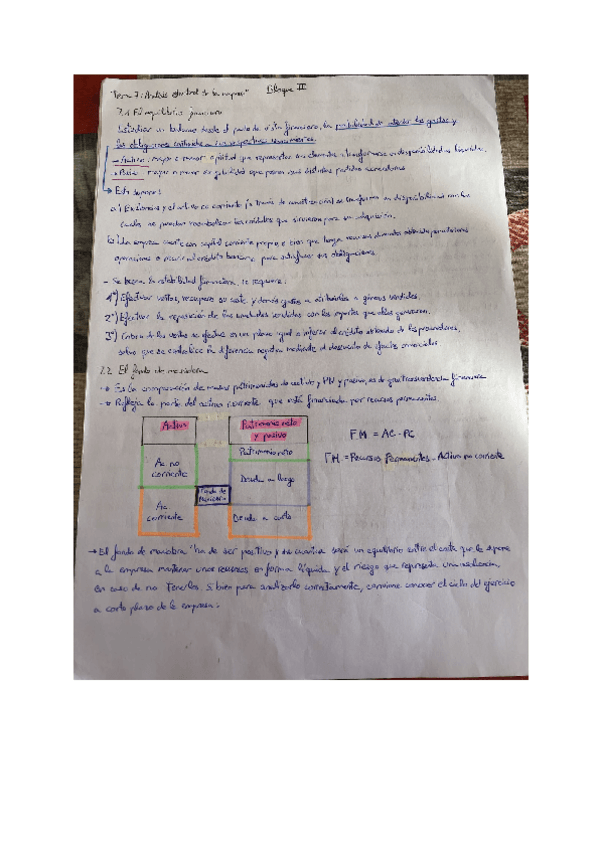 "Tema 7: Análisis de la empresa" Bloque III
7.1 El equilibrio financiero
Estudiar un balance desde el punto de vista financiero, la posibilidad de atender los gastos y
las obligaciones a sus respectivos vencimientos.
- Activo: mayor o menor aptitud que representan sus elementos a transformarse en disponibilidad
- Pasivo: mayor o menor exigibilidad que posean sus distintas partidas acreedoras
→ Esto supone:
a) Existencias y el activo corriente (a través de
no puedan reembolsar los créditos que sirvieron para su adquisición.
b) La empresa cuente con capital corriente propio,
operaciones o recurrir al crédito bancario para satisfacer sus obligaciones
- Se busca la estabilidad financiera, se requiere:
1º) Efectuar ventas, recupere su coste y demás gastos a géneros vendidos.
2º) Efectuar la reposición de las unidades vendidas con los importes que ellas generaron.
3º) Cobro de las ventas se efectúe en un plazo igual o inferior al crédito obtenido de los proveedores,
salvo que se contabilice la diferencia negativa mediante el descuento de efectos comerciales
7.2 El fondo de maniobra
→ Es la comparación de masas patrimoniales de activo y PN y pasivo, es de gran trascendencia financiera
→ Refleja la parte del activo corriente que está financiada por recursos permanentes.
Activo Patrimonio neto y pasivo
FM = AC - PC
Patrimonio neto
FM = Recursos Permanentes - Activo no corriente
Ac no corriente
Deuda a largo
Fondo de Maniobra
Ac corriente
Deuda a corto
→ El fondo de maniobra "ha de ser positivo y su cuantía será un equilibrio entre el coste que le supone
a la empresa mantener unos recursos en forma líquida y el riesgo que representa una insolvencia
en caso de no tenerlos. Si bien para analizarlo correctamente, conviene conocer el ciclo del ejercicio
a corto plazo de la empresa: